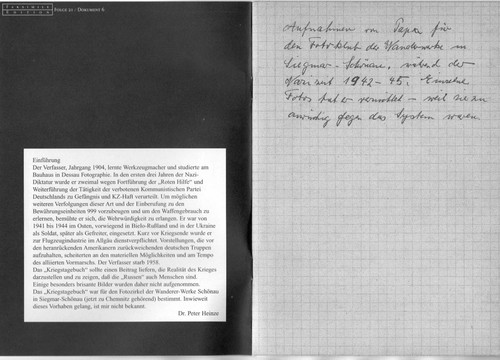 FACSIMILE EDITION
FOLGE 21 / DOKUMENT 6
Einführung
Der Verfasser, Jahrgang 1904, lernte Werkzeugmacher und studierte am
Bauhaus in Dessau Fotographie. In den ersten drei Jahren der Nazi-
Diktatur wurde er zweimal wegen Fortführung der „Roten Hilfe“ und
Weiterführung der Tätigkeit der verbotenen Kommunistischen Partei
Deutschlands zu Gefängnis und KZ-Haft verurteilt. Um möglichen
weiteren Verfolgungen dieser Art und der Einberufung zu den
Bewährungseinheiten 999 vorzubeugen und um den Waffengebrauch zu
erlernen, bemühte er sich, die Wehrwürdigkeit zu erlangen. Er war von
1941 bis 1944 im Osten, vorwiegend in Bielo-Rußland und in der Ukraine
als Soldat, später als Gefreiter, eingesetzt. Kurz vor Kriegsende wurde er
zur Flugzeugindustrie im Allgäu dienstverpflichtet. Vorstellungen, die vor
den heranrückenden Amerikanern zurückweichenden deutschen Truppen
aufzuhalten, scheiterten an den materiellen Möglichkeiten und am Tempo
des alliierten Vormarschs. Der Verfasser starb 1958.
Das „Kriegstagebuch“ sollte einen Beitrag liefern, die Realität des Krieges
darzustellen und zu zeigen, daß die „Russen“ auch Menschen sind.
Einige besonders brisante Bilder wurden daher nicht aufgenommen.
Das „Kriegstagebuch“ war für den Fotozirkel der Wanderer-Werke Schönau
in Siegmar-Schönau (jetzt zu Chemnitz gehörend) bestimmt. Inwieweit
dieses Vorhaben gelang, ist mir nicht bekannt.
Dr. Peter Heinze
Aufnahmen von Papa für
den Fotoklub der Wandererwerke in
Siegmar-Schönau, während der
Nazizeit 1942-45. Einzelne
Fotos hat er vernichtet - weil sie zu
eindeutig gegen das System waren.